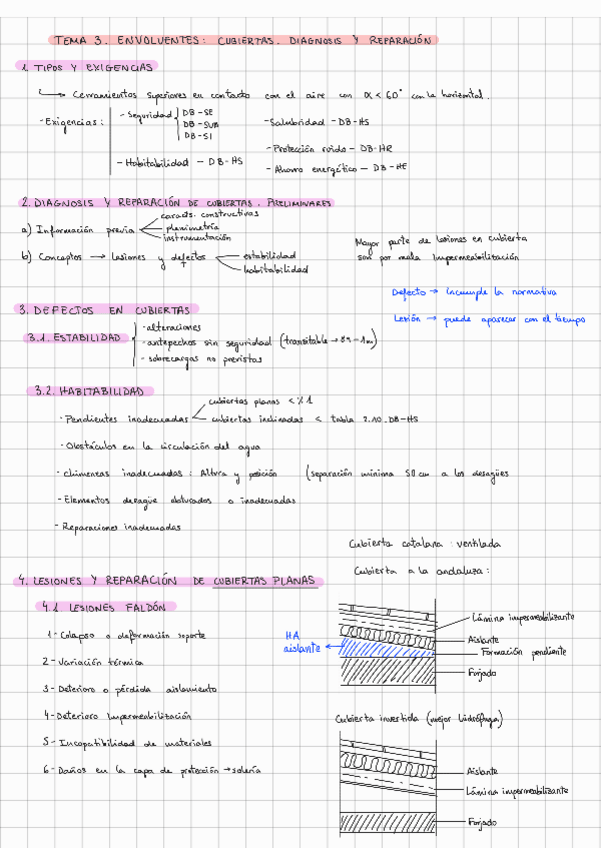 TEMA 3. ENVOLVENTES: CUBIERTAS. DIAGNOSIS Y REPARACIÓN
1. TIPOS Y EXIGENCIAS
Cerramientos superiores en contacto con el aire con α < 60° con la horizontal.
- Exigencias:
- Seguridad
DB-SE
DB-SUA
DB-SI
- Habitabilidad — DB-HS
- Salubridad - DB-HS
- Protección ruido - DB-HR
- Ahorro energético - DB-HE
2. DIAGNOSIS Y REPARACIÓN DE CUBIERTAS. PRELIMINARES
a) Información previa
caracts. constructivas
planimetría
instrumentación
b) Conceptos → lesiones y defectos
estabilidad
habitabilidad
Mayor parte de lesiones en cubierta
son por mala impermeabilización
Defecto → incumple la normativa
Lesión → puede aparecer con el tiempo
3. DEFECTOS EN CUBIERTAS
3.1. ESTABILIDAD
- alteraciones
- antepechos sin seguridad (transitable →
- sobrecargas no previstas
3.2. HABITABILIDAD
- Pendientes inadecuadas
cubiertas planas < % 1
cubiertas inclinadas < tabla 2.10. DB-HS
- Obstáculos en la circulación del agua
- chimeneas inadecuadas: Altura y posición (separación mínima 50 cm a los desagües
- Elementos desagüe obturados o inadecuadas
- Reparaciones inadecuadas
Cubierta catalana: ventilada
Cubierta a la andaluza:
4. LESIONES Y REPARACIÓN DE CUBIERTAS PLANAS
4.1 LESIONES FALDÓN
1- Colapso o deformación soporte
2- Variación térmica
3- Deterioro o pérdida aislamiento
4- Deterioro impermeabilización
5- Incopatibilidad de materiales
6- Daños en la capa de protección → solería
HA
aislante
Lámina impermeabilizante
Aislante
Formación pendiente
Forjado
Cubierta invertida (mejor hidrófuga)
Aislante
Lámina impermeabilizante
Forjado